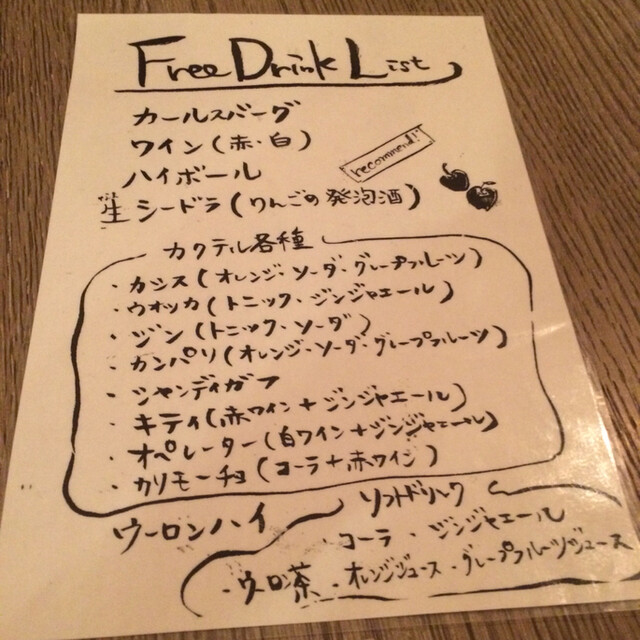 Free Drink List
カールスバーグ
ワイン(赤・白)
recommend!!
ハイボール
生 シードラ(りんごの発泡酒)
カクテル各種
・カシス(オレンジ・ソーダ・グレープフルーツ)
・ウオッカ(トニック・ジンジャエール)
・ジン(トニック・ソーダ)
・カンパリ(オレンジ・ソーダ・グレープフルーツ)
・シャンディガフ
・キティ(赤ワイン+ジンジャエール)
・オペレーター(白ワイン+ジンジャエール)
・カリモーチョ(コーラ+赤ワイン)
ウーロンハイ
ソフトドリンク
・コーラ ・ジンジャエール
・ウーロン茶 ・オレンジジュース ・グレープフルーツジュース